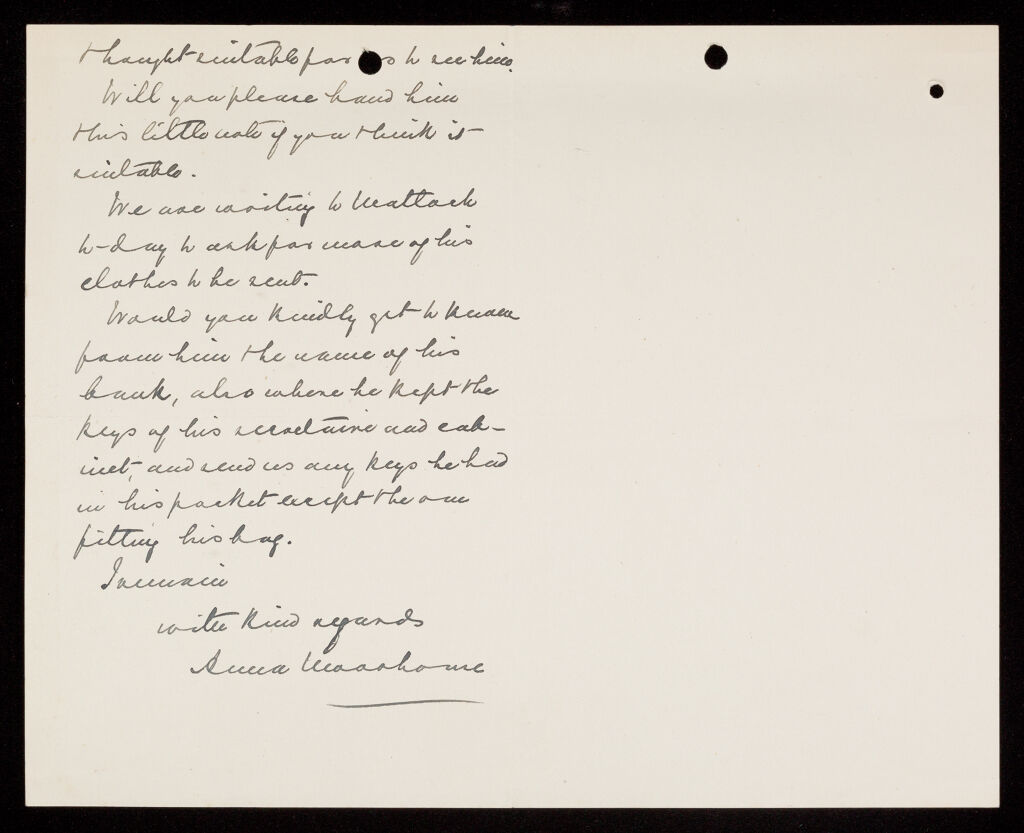 thought suitable for us to see him.
Will you please hand him
this little note if you think it
suitable.
We are writing to Matlock
to-day to ask for more of his
clothes to be sent.
Would you kindly get to know
from him the name of his
bank, also where he kept the
keys of his secretaire and cab-
inet, and send us any keys he had
in his pocket except the one
fitting his bag.
I remain
with kind regards
Anna Moorhouse